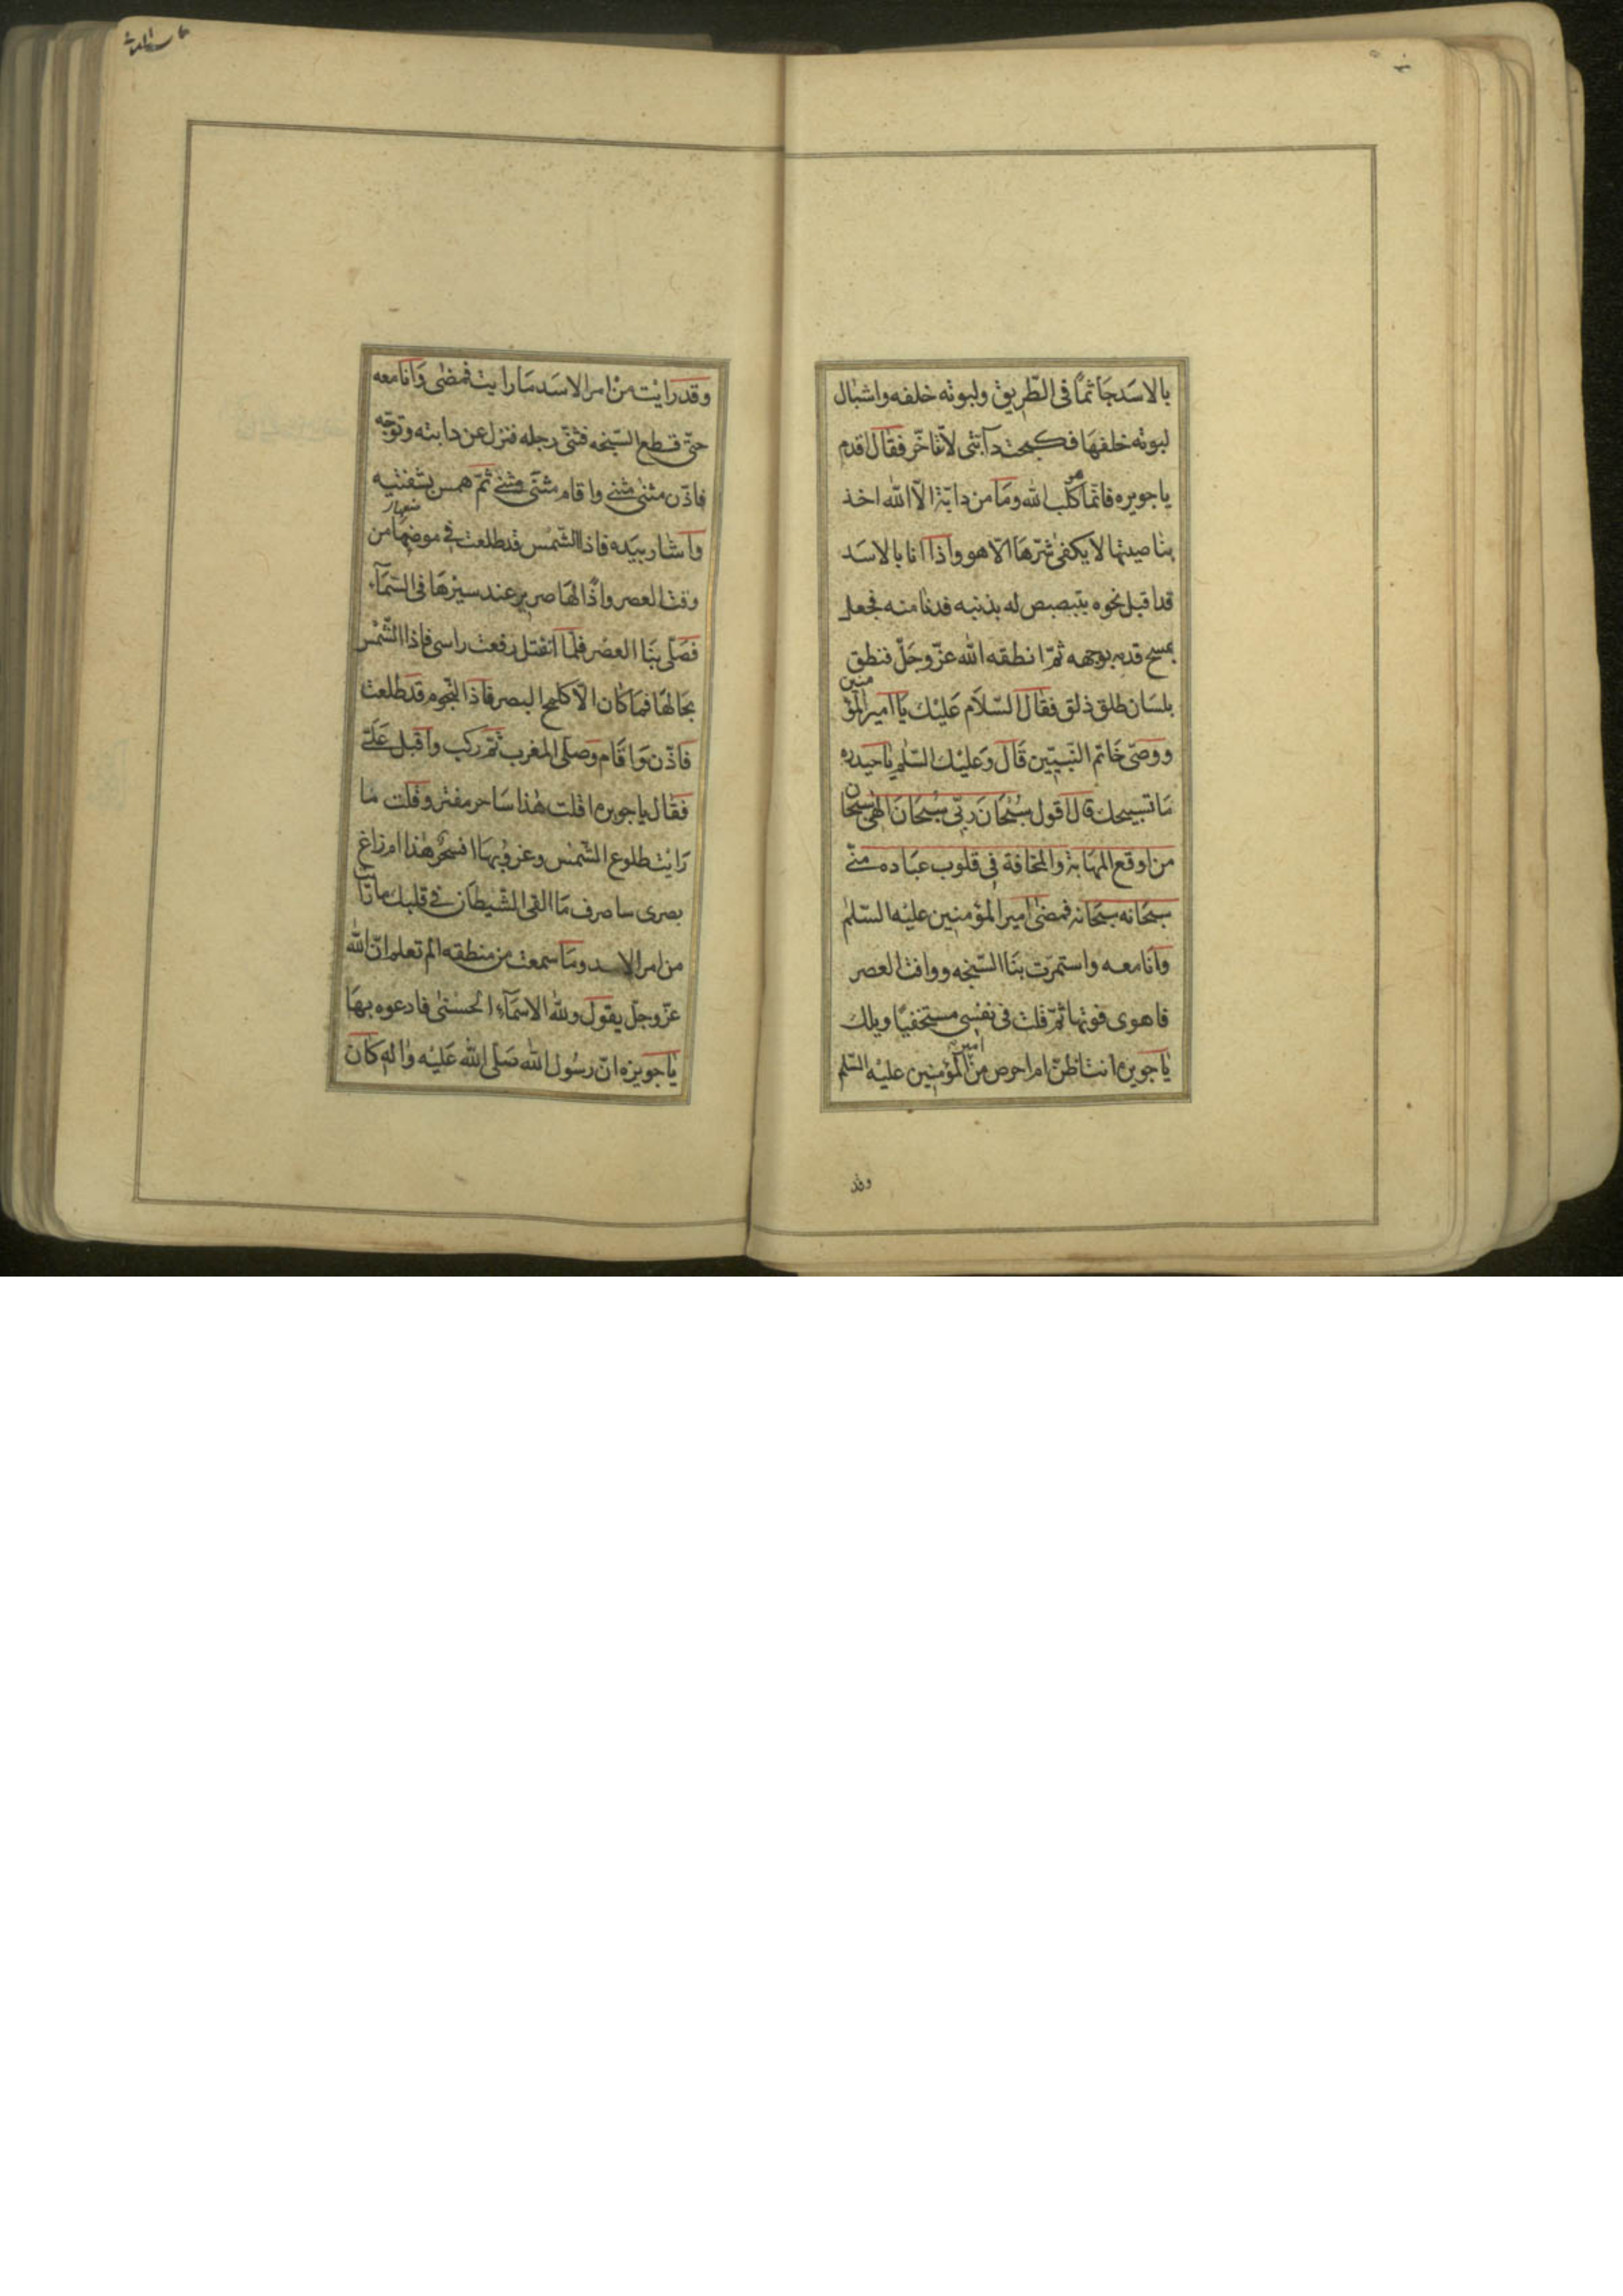 بالاسَد جَاثمًا فى الطّريق ولبوته خلفه واشبال
لبوته خلفهَا فكبحت دآبّتى لاتاخّر فقال اقدم
يا جويره فانّما هو كلب الله ومَا من دابّة الّا الله اخذ
بناصيتها لا يكفى شرّهَا الّا هو واذا انا بالاسَد
قد اقبل نحوه يتبصبص له بذنبه فدنا منه فجعل
يمسح قدمه بوجهه ثمّ انطقه الله عزّ وجَلّ فنطق
بلسَان طلق ذلق فقال السّلاَم عَليْك يَا امير المؤمنين
ووصىّ خَاتم النّبيّين قَالَ وَعليْك السّلم يَا حيدره
مَا تسبيحك قال اقول سُبْحَانَ ربّى سُبْحَانَ الهى سبحان
من اوقع المهَابة والمخافة فى قلوب عبَاده منّى
سبحَانه سبحَانه فمضى امير المؤمنين عليْه السّلم
وَانا معه واستمرّت بنَا السّبخه ووافت العصر
فاهوى فوتها ثمّ قلت فى نفسى مستخفيًا ويلك
يَا جويره انت اظنّ ام احرص من امير المؤمنين عليْه السّلم
وقد
وقد رايْت منْ امر الاسَد مَا رايت فمضى وَانا معه
حتّى قطع السّبخه فثنّى رجله فنزل عن دابته وتوجّه
فاذّن مثنى مثنى واقام مثنّى مثنى ثمّ همس بشفتيه
وَاشار بيَده فاذا الشّمْس قد طلعت فى موضعهَا من
وقت العصر واذًا لهَا صرير عند سيْرهَا فى السّمَآء
فصَلّى بنَا العصْر فلمّا انفتل رفعت راسى فاذا الشّمْس
بحَالهَا فمَا كان الّا كلمح البصر فاذا النّجوم قد طلعت
فاذّن وَاقَام وصَلّى المغرب ثمّ ركب وَاقبل عَلَىّ
فقال يا جويره اقلت هٰذا سَاحر مفتر وقلت ما
رَايْت طلوع الشّمْس وغروبهَا افسحر هٰذا ام زاغ
بصرى ساصرف مَا القى الشّيطان فى قلبك ما رايت
من امر الاسد ومَا سمعت من منطقه الم تعلم انّ الله
عزّ وجلّ يقول ولله الاسمَآء الحسْنى فادعوه بهَا
يَا جويره انّ رسُول الله صَلّى الله عَليْه واله كان